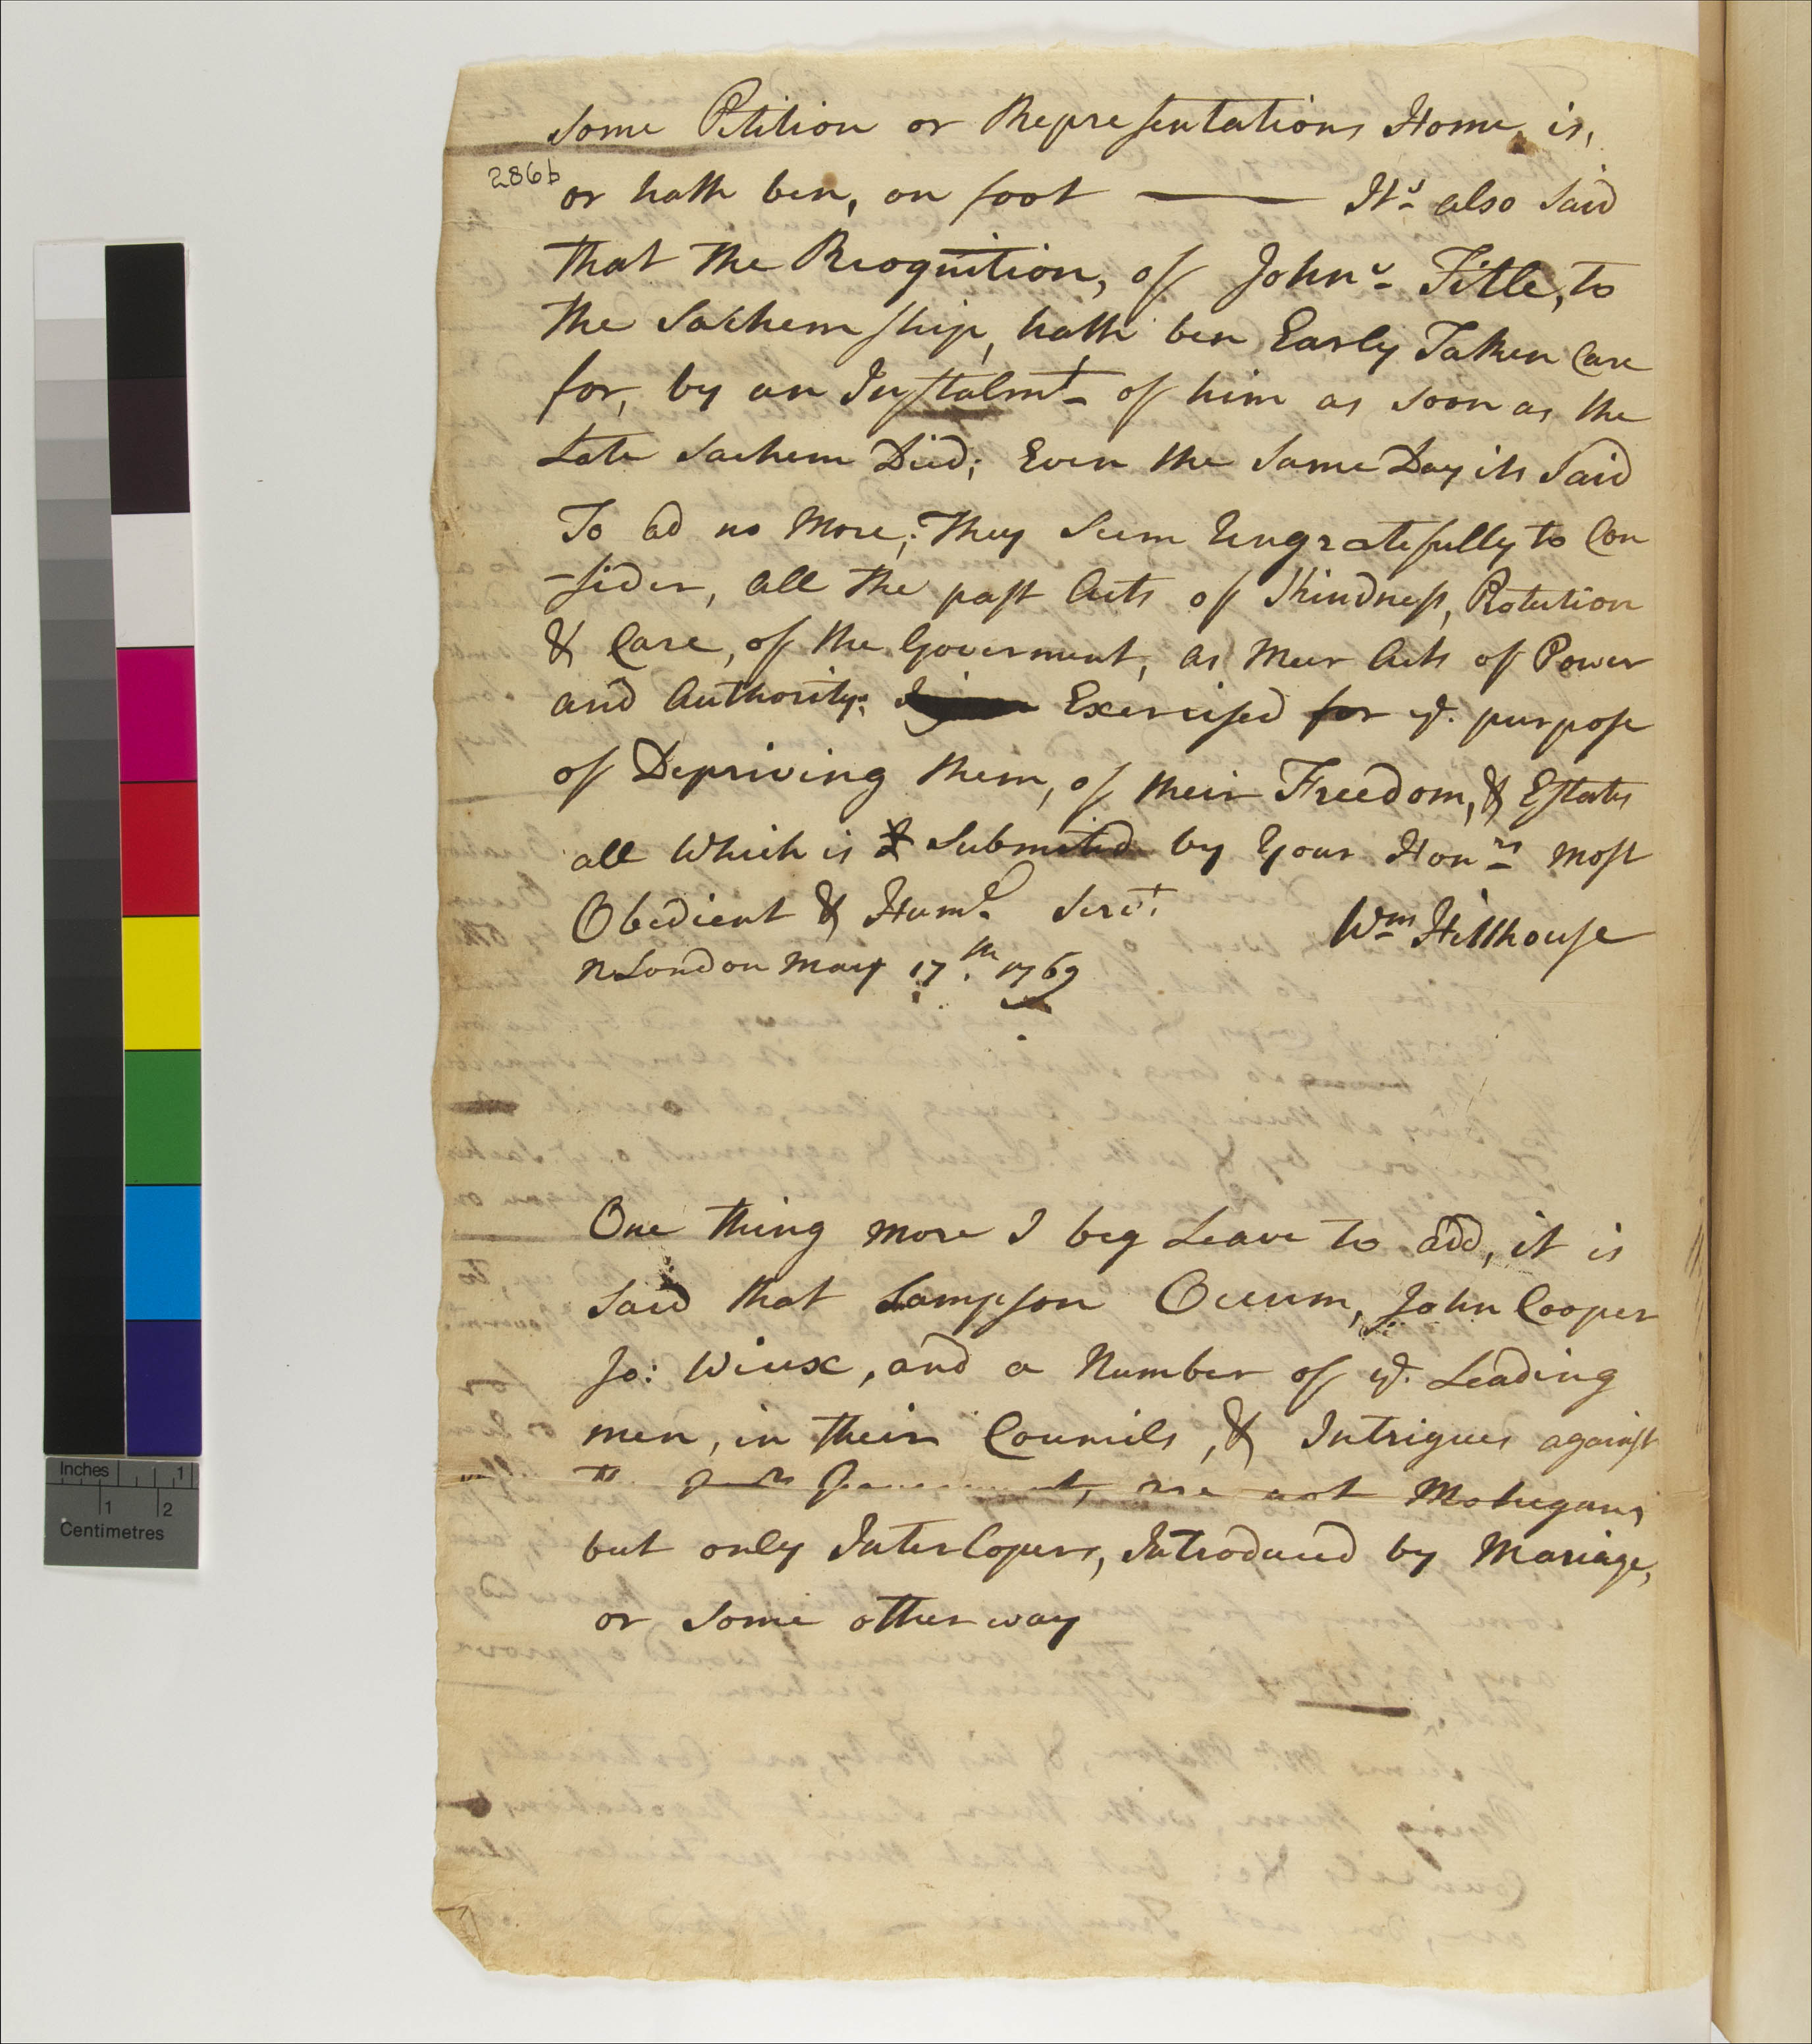 some Petition or Representations Home, is,
286b
or hath ben, on foot —— Its also said
that the Recognition, of Johns Title, to
the Sachem ship, hath ben Early Taken Care
for, by an Instalmt of him as soon as the
Late Sachem Died; Even the same Day its said
To ad no more; They seem Ungratefully to Con
-sider, all the past Acts of Kindness, Protection
& Care, of the Goverment, as meer Acts of Power
and Authority; Exercised for ye. purpose
of Depriving them, of their Freedom, & Estates
all Which is & Submitted by Your Honrs most
Obedient & Humle. Servt.
Wm Hillhouse
N London May 17th. 1769
One thing more I beg Leave to add, it is
said that Sampson Occum, John Cooper
Jo: Wiux, and a Number of ye. Leading
men, in their Councils, & Intrigues against
are not Mohegans,
but only Interlopers, Introduced by Mariage,
or some other way
Inches 1
1 2
Centimetres